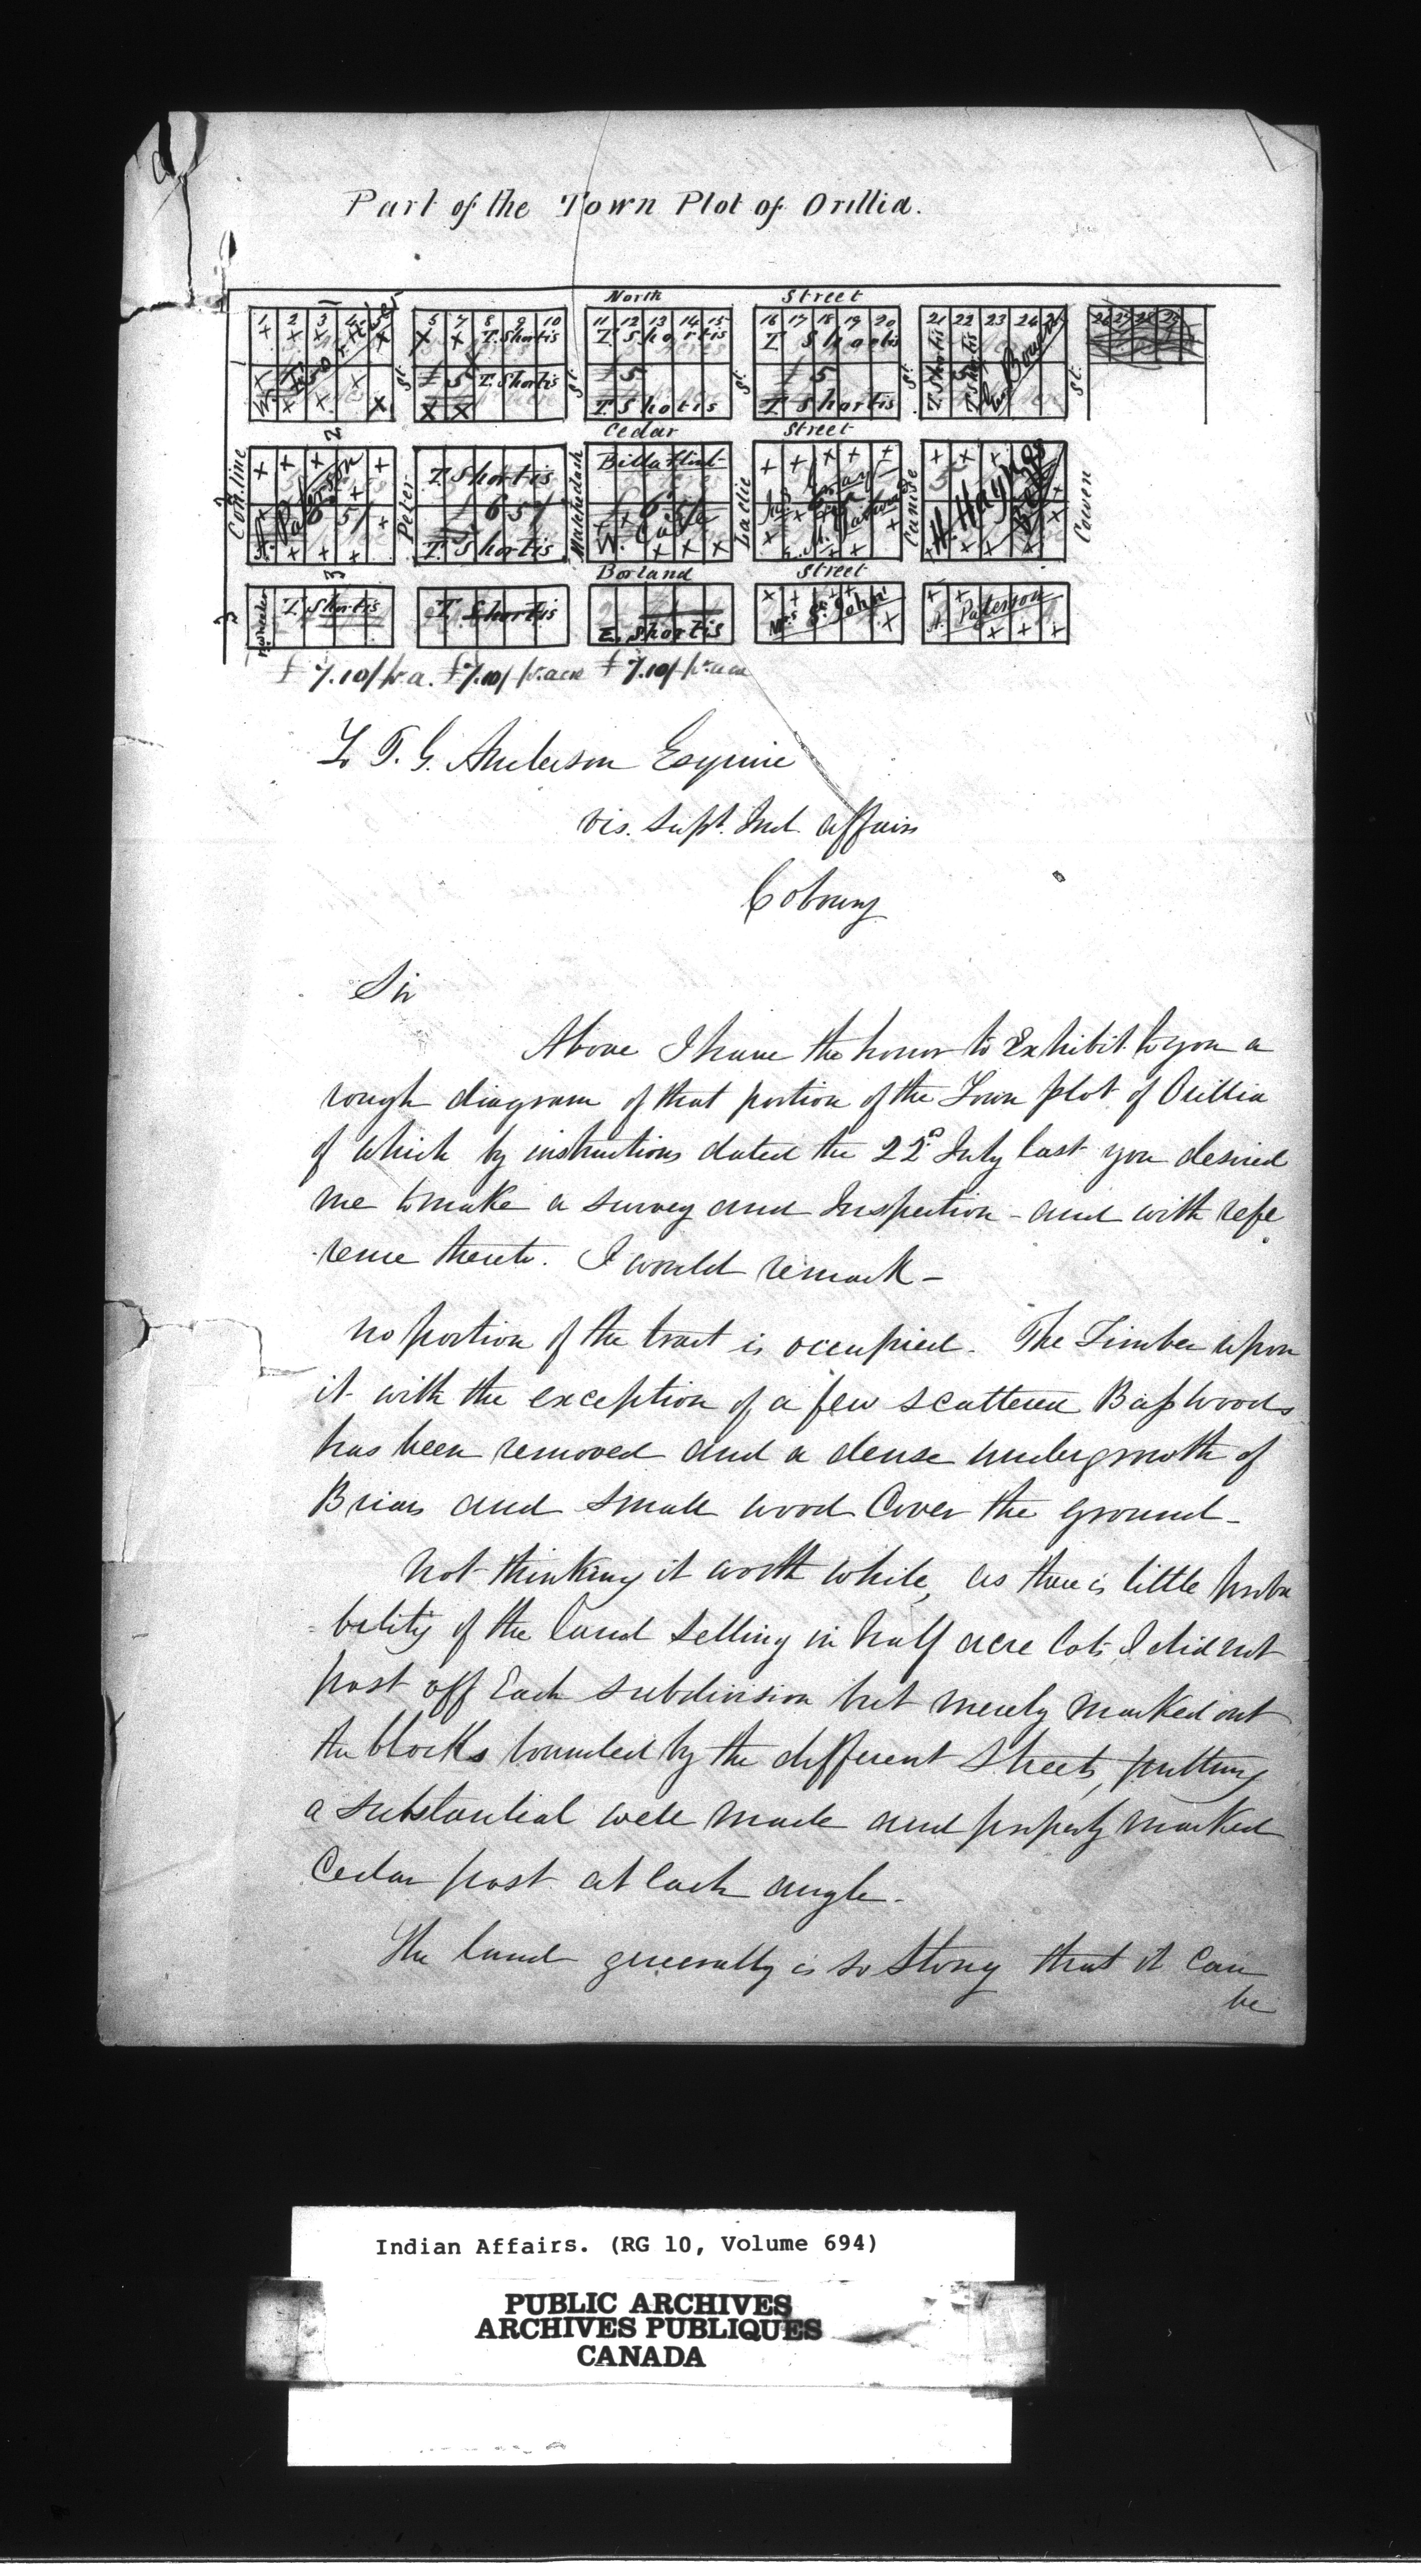 Part of the Town Plot of Orillia.
North Street
1 2 3 4
5 7 8 9 10
11 12 13 14 15
16 17 18 19 20
21 22 23 24
26 27 28 29
T. Shortis
T. Shortis
T. Shortis
T. Shortis
T. Shortis
T. Shortis
T. Shotis
T. Shortis
£ 5
£ 5
£ 5
St.
St.
St.
St.
St.
Cedar Street
Con. line
Peter
Matchedash
Laclie
Canise
Cowen
A. Paterson
T. Shortis
£ 6 5/
T. Shortis
Billa Flint
W. Case
Jas Gray
H. Haynes
Borland Street
1
2
3
R. Wheeler
T. Shortis
T. Shortis
E. Shortis
Mrs St. John
A. Paterson
£ 7.10/ pr. a. £ 7.10/ pr. acre £ 7.10/ pr. acre
To T. G. Anderson Esquire
Vis. Supt. Ind. Affairs
Cobourg
Sir
Above I have the honor to Exhibit to you a
rough diagram of that portion of the Town plot of Orillia
of which by instructions dated the 22d July last you desired
me to make a survey and Inspection - and with refe
-rence thereto. I would remark -
No portion of the tract is occupied. The Timber upon
it with the exception of a few scattered Basswoods
has been removed and a dense undergrowth of
Briars and small wood Cover the ground -
Not thinking it worth while, as there is little proba
=bility of the land selling in half acre lots I did not
post off Each subdivision but merely marked out
the blocks bounded by the different Streets, putting
a substantial well made and properly marked
Cedar post at each angle -
The land generally is so Stony that it can
be
Indian Affairs. (RG 10, Volume 694)
PUBLIC ARCHIVES
ARCHIVES PUBLIQUES
CANADA